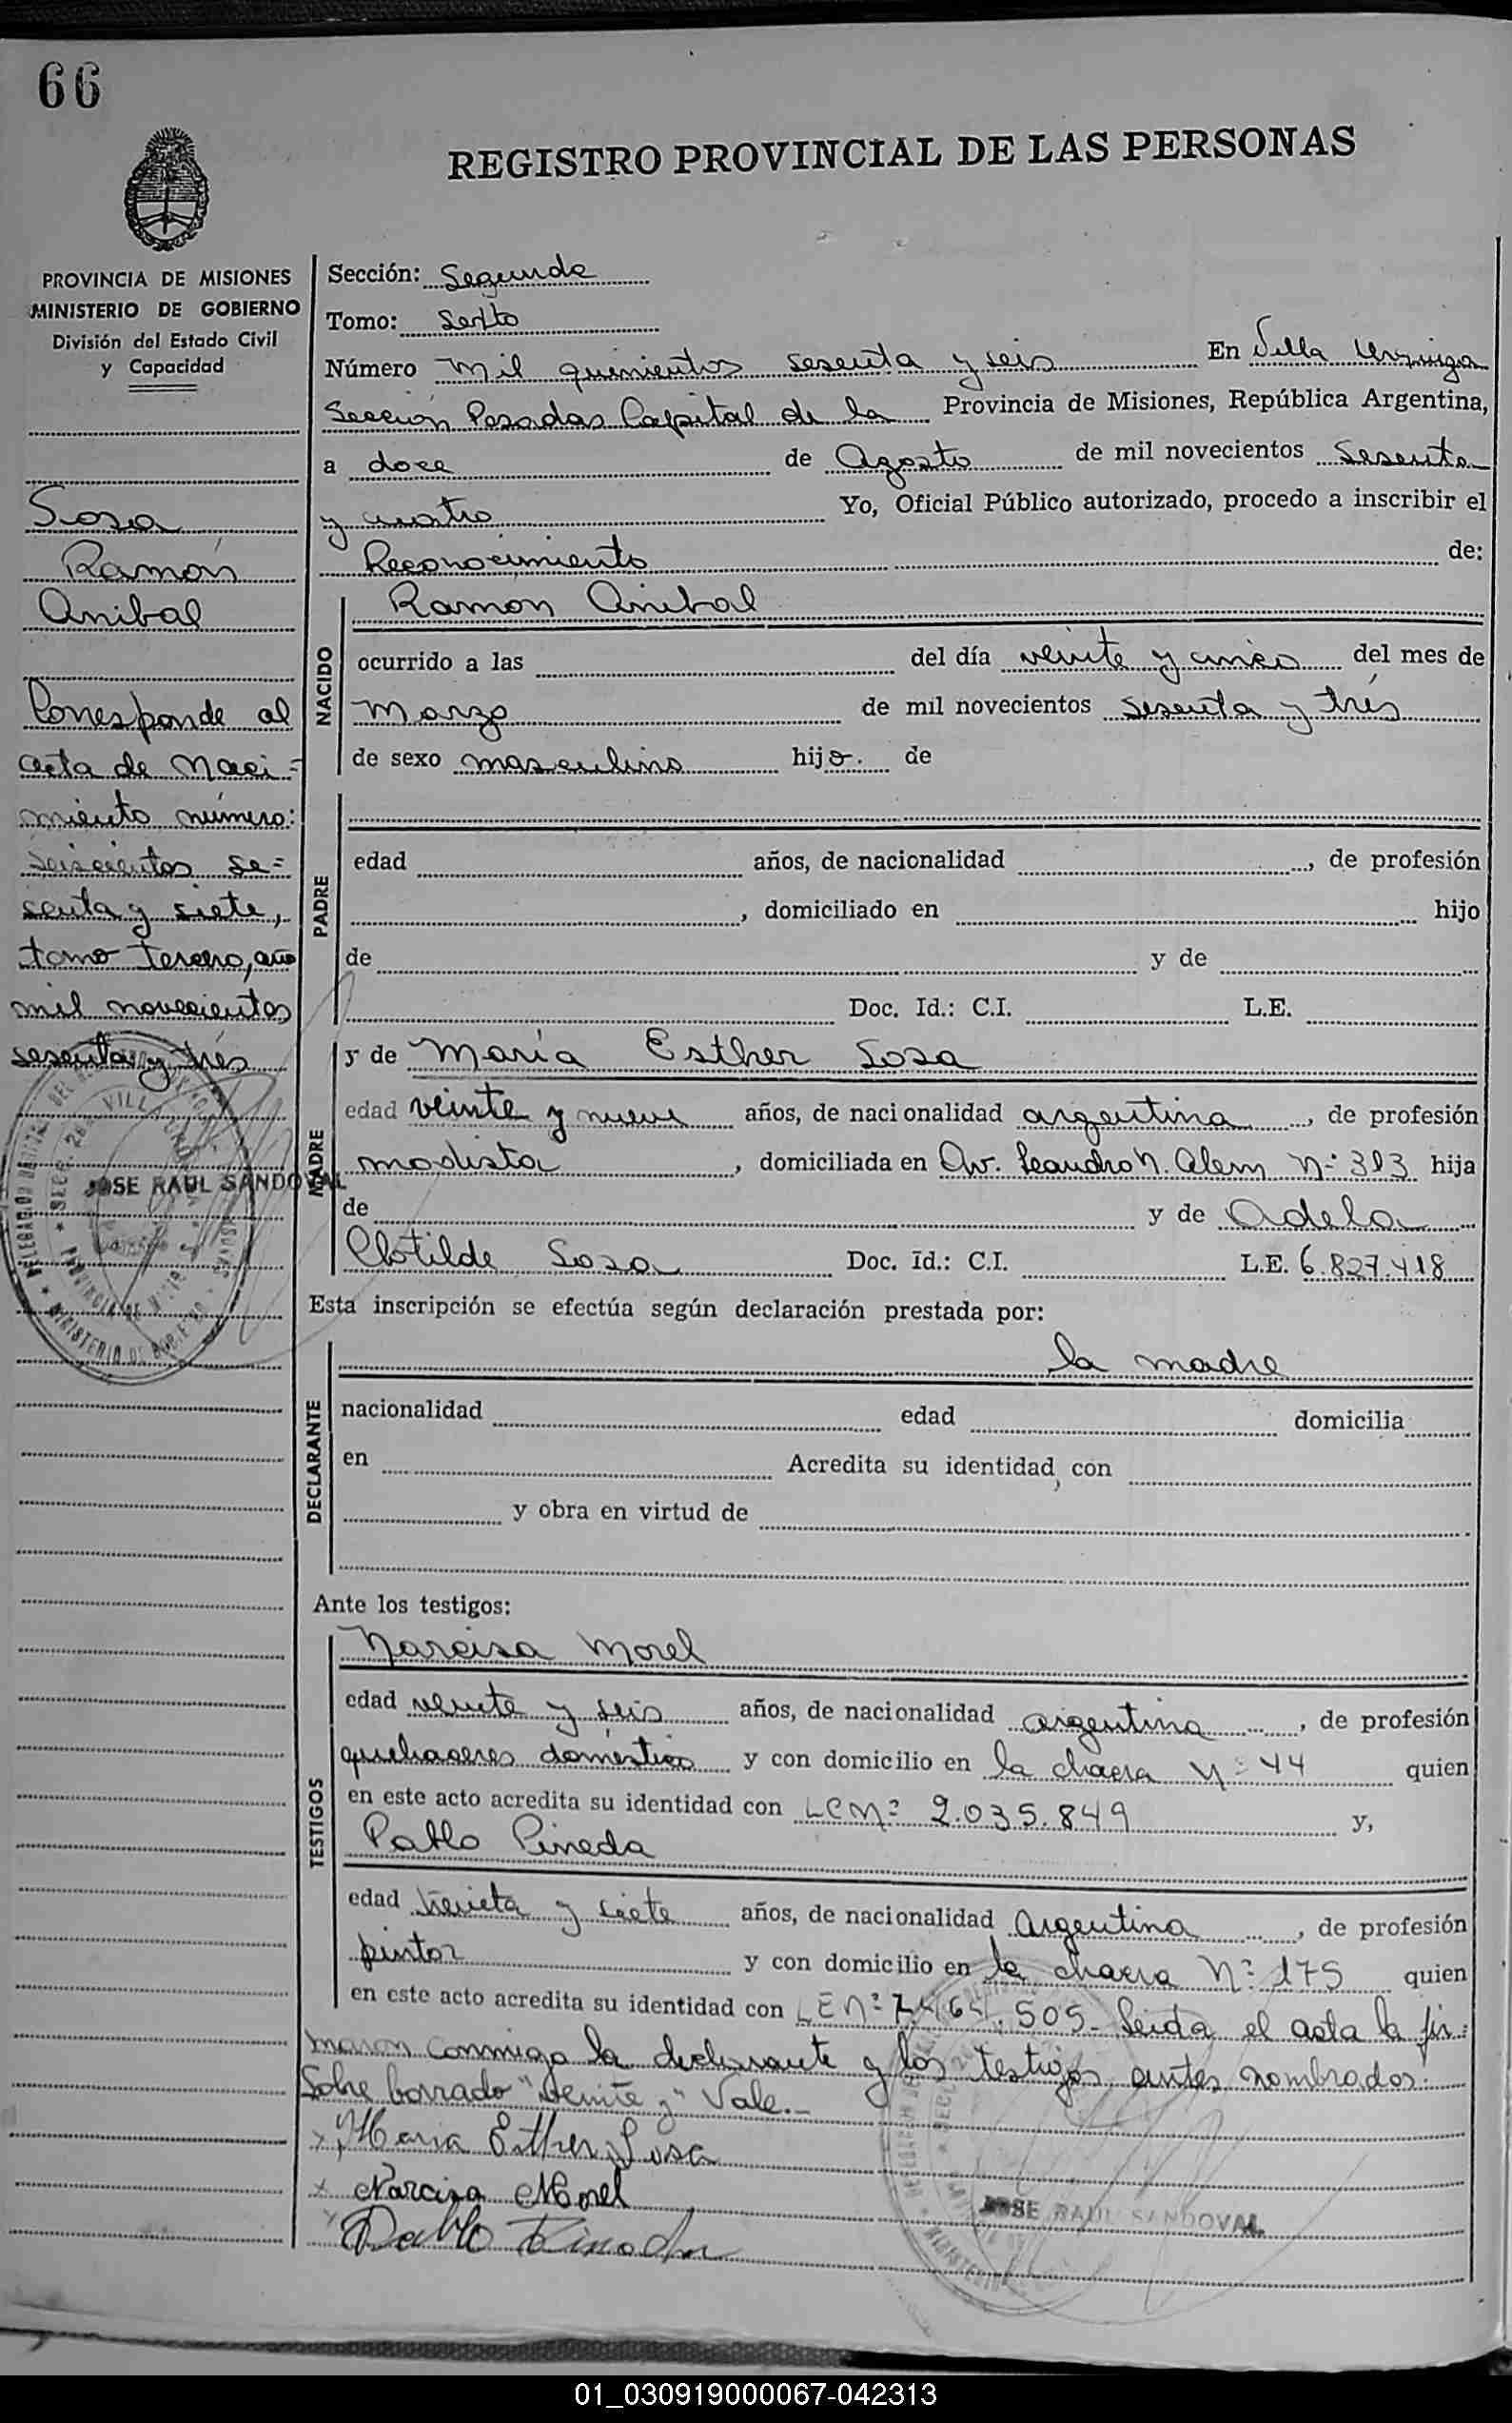 66
REGISTRO PROVINCIAL DE LAS PERSONAS
PROVINCIA DE MISIONES
MINISTERIO DE GOBIERNO
División del Estado Civil
y Capacidad
Sosa
Ramón
Anibal
Corresponde al
acta de Naci=
miento número:
seiscientos se=
senta y siete,
tomo tercero, año
mil novecientos
sesenta y tres
JOSE RAUL SANDOVAL
Sección: Segunda
Tomo: Sexto
Número mil quinientos sesenta y seis En Villa Urquiza
Sección Posadas Capital de la Provincia de Misiones, República Argentina,
a doce de Agosto de mil novecientos sesenta
y cuatro Yo, Oficial Público autorizado, procedo a inscribir el
Reconocimiento de:
NACIDO
Ramón Anibal
ocurrido a las del día veinte y cinco del mes de
Marzo de mil novecientos sesenta y tres
de sexo masculino hijo. de
PADRE
edad años, de nacionalidad , de profesión
, domiciliado en hijo
de y de
Doc. Id.: C.I. L.E.
MADRE
y de María Esther Sosa
edad veinte y nueve años, de nacionalidad argentina, de profesión
modista, domiciliada en Av. Leandro N. Alem Nº 313 hija
de y de Adela
Clotilde Sosa Doc. Id.: C.I. L.E. 6.827.418
Esta inscripción se efectúa según declaración prestada por:
DECLARANTE
la madre
nacionalidad edad domicilia
en Acredita su identidad, con
y obra en virtud de
Ante los testigos:
TESTIGOS
Narcisa Morel
edad veinte y seis años, de nacionalidad argentina, de profesión
quehaceres domésticos y con domicilio en la chacra Nº 44 quien
en este acto acredita su identidad con LC Nº 2.035.849 y,
Pablo Pineda
edad treinta y siete años, de nacionalidad Argentina, de profesión
pintor y con domicilio en la chacra Nº 175 quien
en este acto acredita su identidad con LE Nº 505- Leida el acta la fir=
maron conmigo la declarante y los testigos antes nombrados.
Sobre borrado "veinte y" Vale.-
x Maria Esther Sosa
x Narcisa Morel
x Pablo Pineda
JOSE RAUL SANDOVAL
01_030919000067-042313